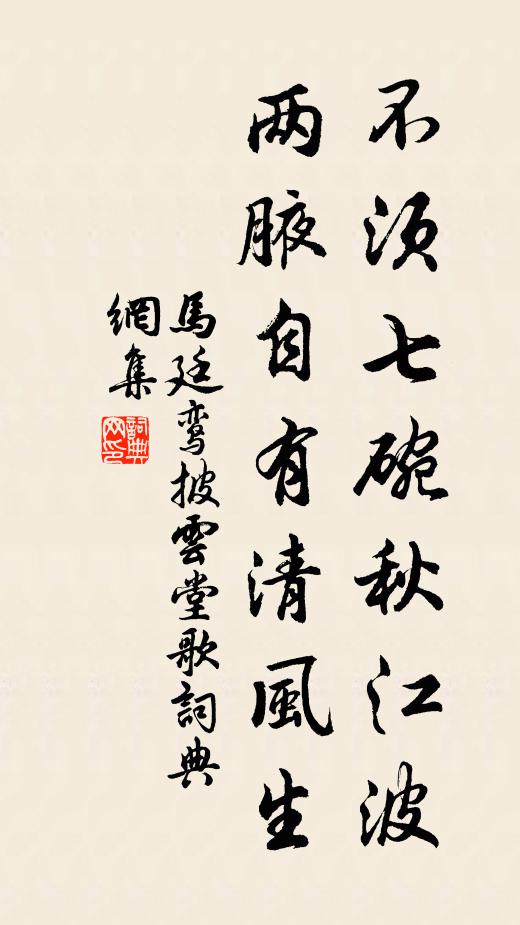 不须七碗秋江波
两腋自有清風生
馬廷鸾披雲堂歌詞典
網集
詞典网印